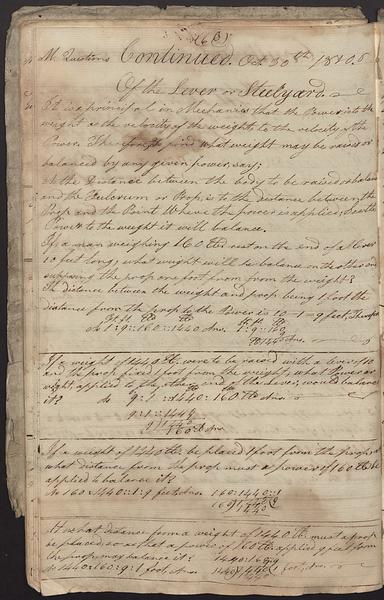 M. Questions Continued. Oct 30th 1810.
Of the Lever or Steelyard.
It is a principal in Mechanics that the Power is to the
weight as the velocity of the weight, is to the velocity of the
Power. Therefore to find what weight may be raised or
balanced by any given power, say;
As the Distance between the body to be raised or balanced
and the Fulcrum or Prop, is to the distance between the
Prop and the Point Where the power is applied; so is the
Power to the weight it will balance.
If a man weighing 160 lb rest on the end of a lever
10 feet long; what weight will he balance on the other end
supposing the prop one foot from the weight?
The distance between the weight and prop being 1 foot the
distance from the prop to the Power is 10-1=9 feet, Therefore
As 1:9::160:1440 Ans. 1:9::160
9
1440 Ans.
If a weight of 1440 lb. were to be raised with a lever 10
and the prop fixed 1 foot from the weight, what Power or
weight applied to the other end of the Lever, would balance
it? As 9:1::1440:160 lb Ans.
9:1::1440
9)1440
160 Ans.
If a weight of 1440 lb be placed 1 foot from the prop, at
what distance from the prop must a power of 160 lb be
applied to balance it?
As 160:1440::1:9 feet Ans. 160:1440::1
160)1440(9
1440
At what distance from a weight of 1440 lb. must a prop
be placed, so as that a power of 160 lb applied 9 feet from
the prop may balance it? 1440:160::9
As 1440:160::9:1 foot Ans 1440)1440(1 foot Ans.
1440